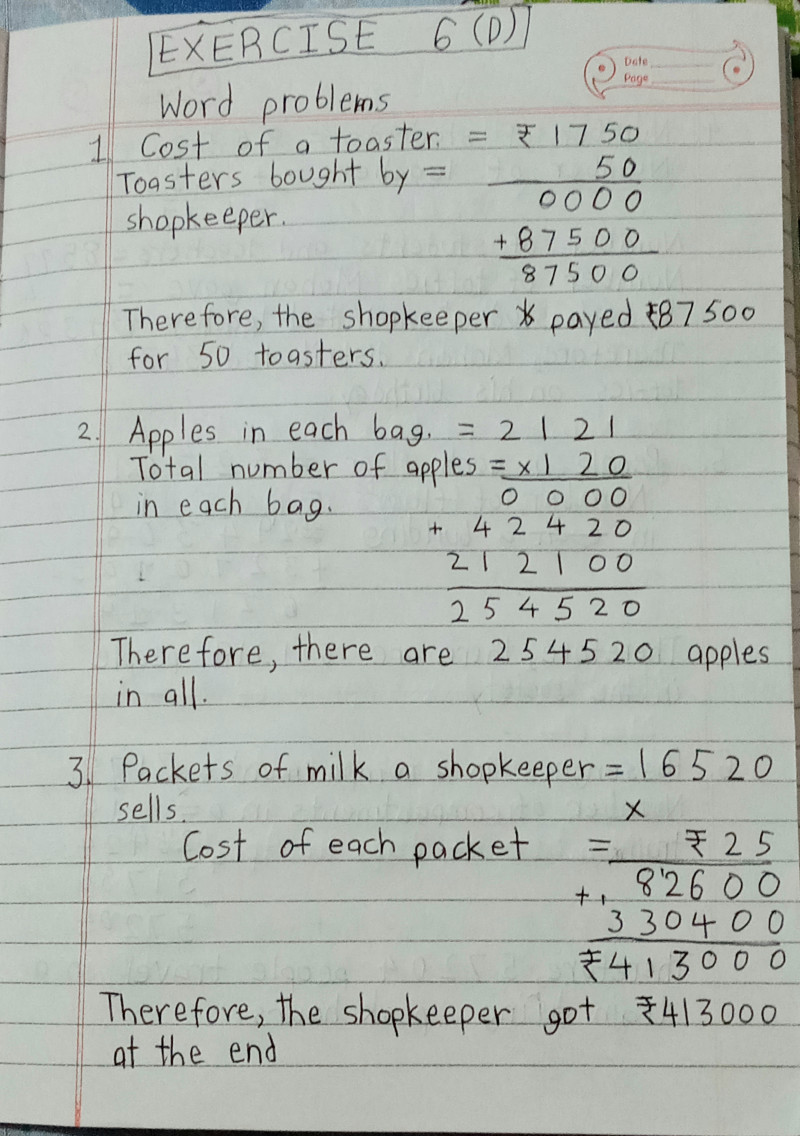 EXERCISE 6 (D)
Date
Page
Word problems
1. Cost of a toaster. = ₹ 1750
Toasters bought by = 50
shopkeeper. 0000
+ 87500
87500
Therefore, the shopkeeper payed ₹87500
for 50 toasters.
2. Apples in each bag. = 2121
Total number of apples = x120
in each bag. 0000
+ 42420
212100
254520
Therefore, there are 254520 apples
in all.
3. Packets of milk a shopkeeper = 16520
sells. x
Cost of each packet = ₹ 25
+ 82600
330400
₹413000
Therefore, the shopkeeper got ₹413000
at the end